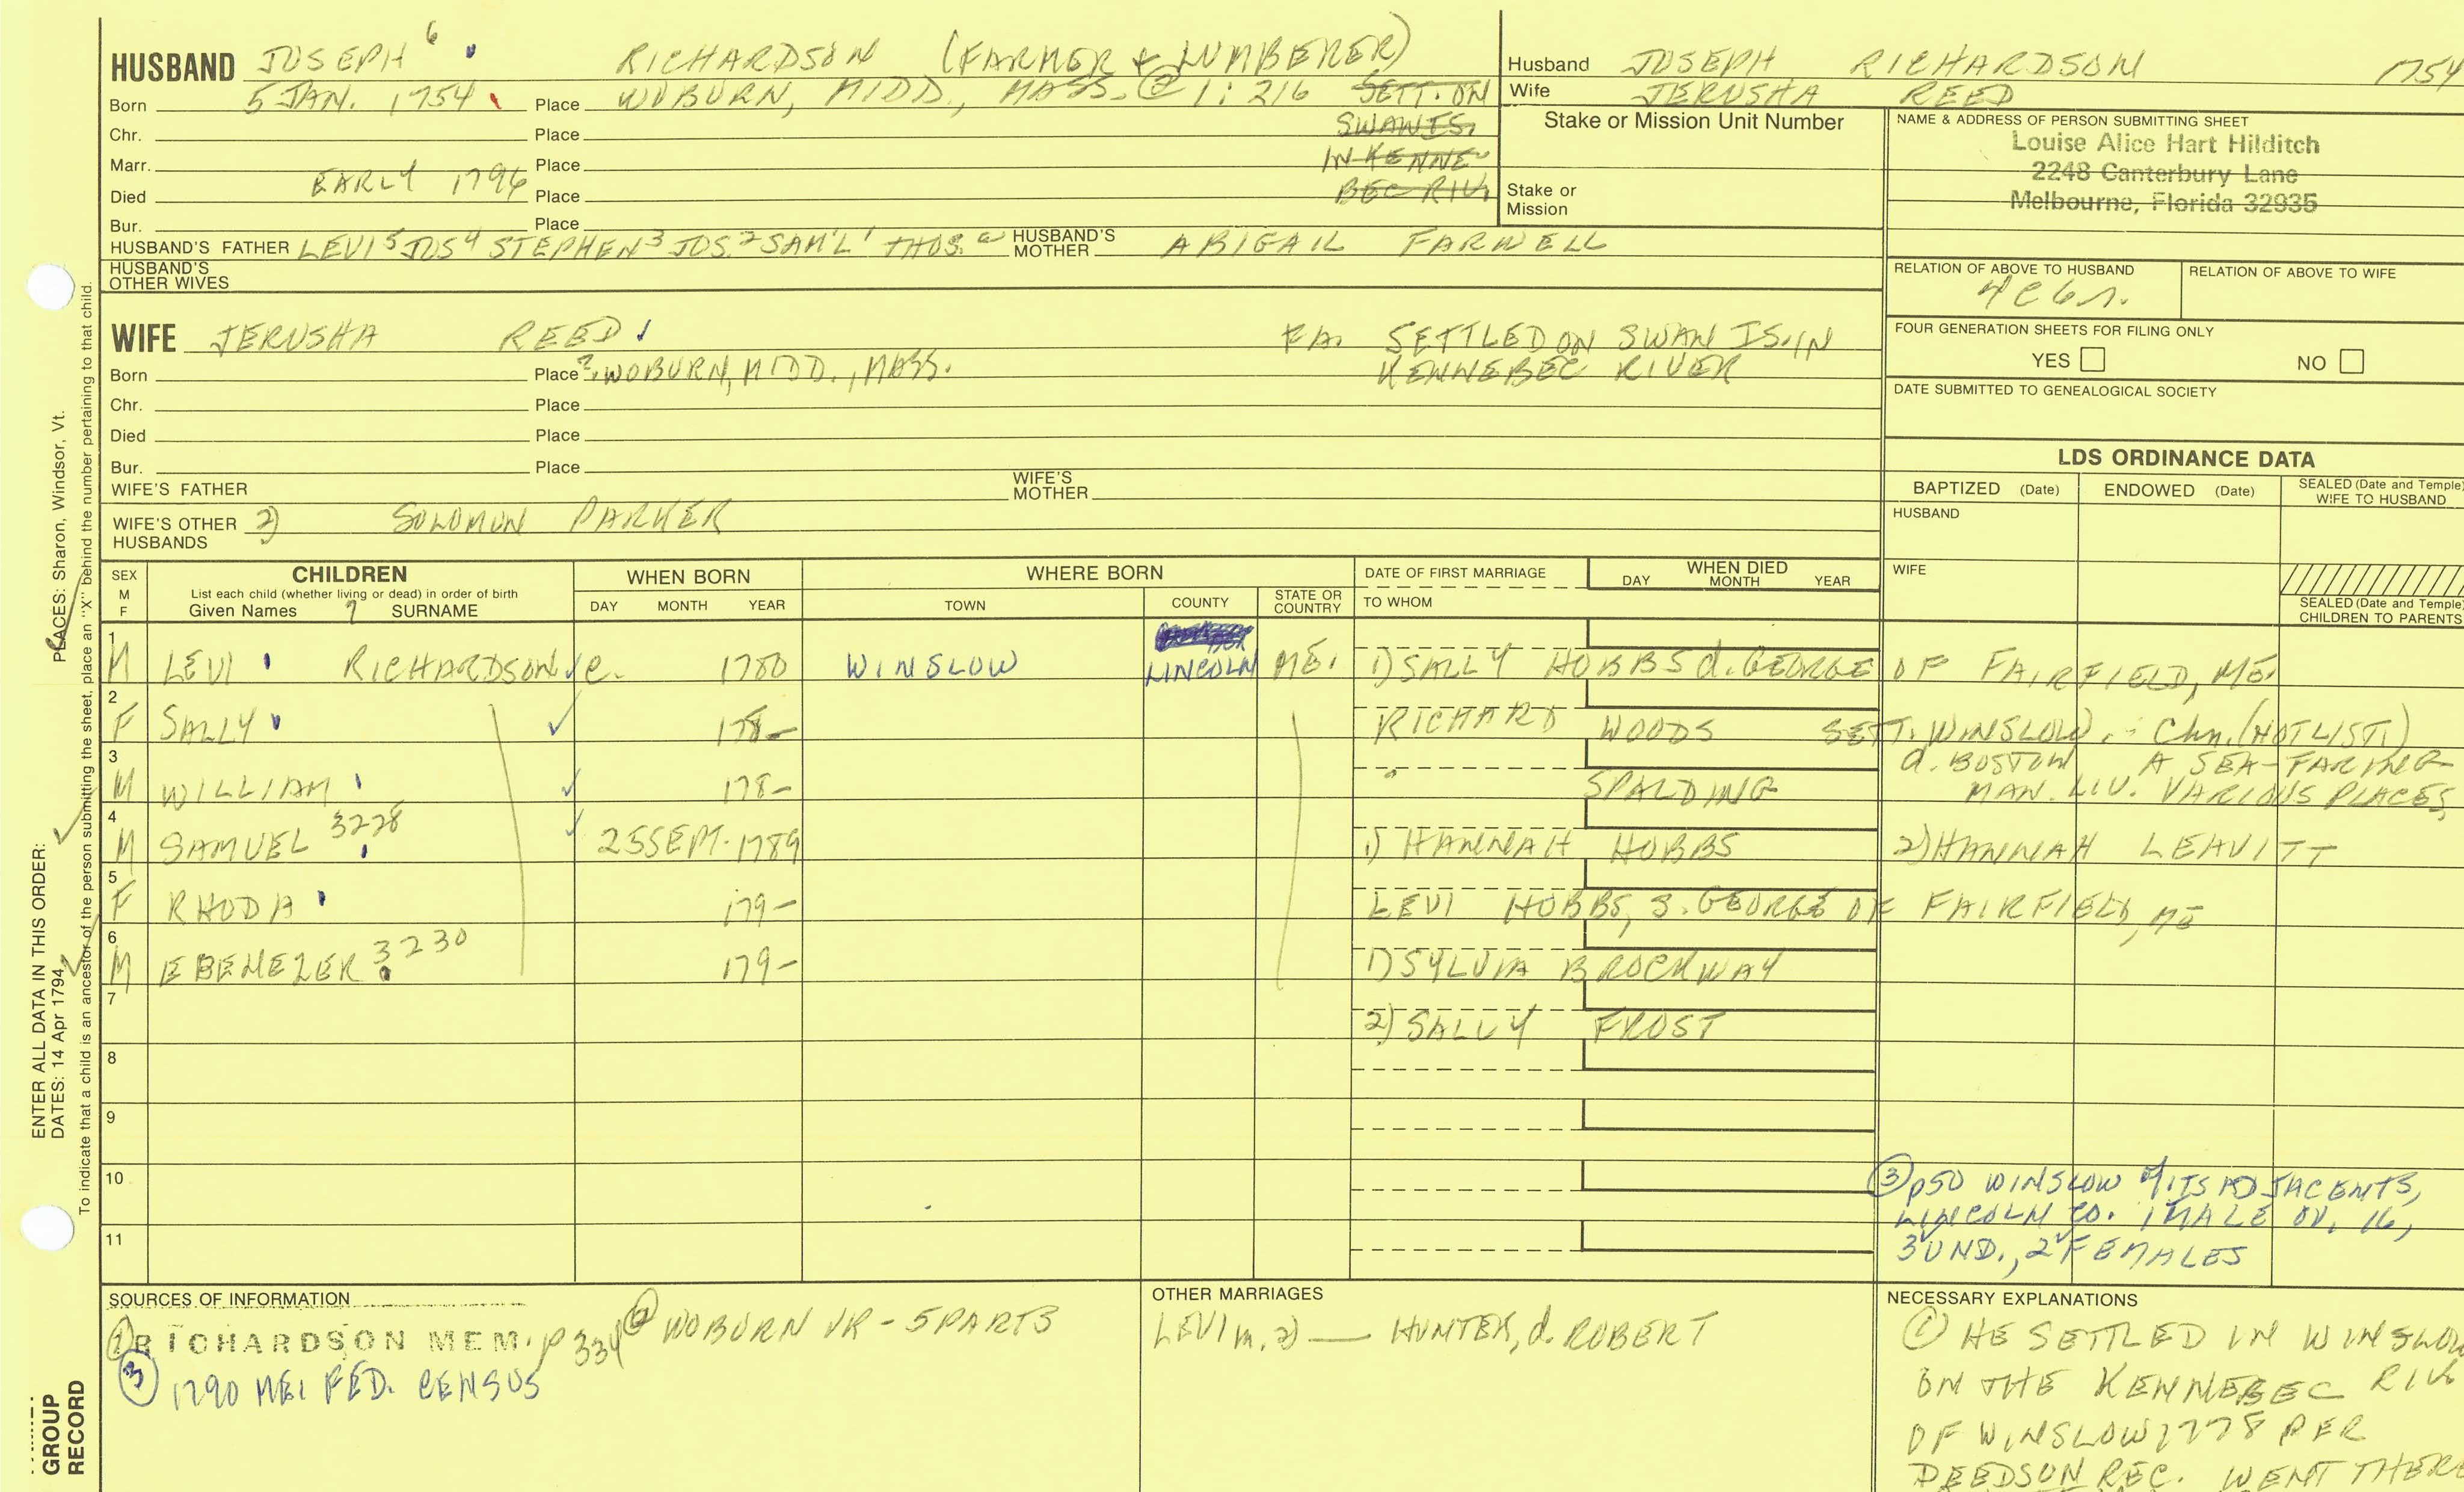 HUSBAND JOSEPH 6 RICHARDSON (FARMER & LUMBERER)
Born 5 JAN. 1754 Place WOBURN, MIDD., MASS. @ 1:216 SETT. ON
Chr. Place SWAN IS.
Marr. Place IN KENNE-
Died EARLY 1796 Place BEC RIV.
Bur. Place
HUSBAND'S FATHER LEVI 5 JOS 4 STEPHEN 3 JOS. 2 SAM'L 1 THOS. a HUSBAND'S MOTHER ABIGAIL FARWELL
HUSBAND'S OTHER WIVES
Husband JOSEPH RICHARDSON 1754
Wife JERUSHA REED
Stake or Mission Unit Number
Stake or Mission
NAME & ADDRESS OF PERSON SUBMITTING SHEET
Louise Alice Hart Hilditch
2248 Canterbury Lane
Melbourne, Florida 32935
RELATION OF ABOVE TO HUSBAND
RELATION OF ABOVE TO WIFE
FOUR GENERATION SHEETS FOR FILING ONLY
YES NO
DATE SUBMITTED TO GENEALOGICAL SOCIETY
WIFE JERUSHA REED FA. SETTLED ON SWAN IS. IN
KENNEBEC RIVER
Born Place ?, WOBURN, MIDD., MASS.
Chr. Place
Died Place
Bur. Place
WIFE'S FATHER WIFE'S MOTHER
WIFE'S OTHER HUSBANDS 2) SOLOMON PARKER
LDS ORDINANCE DATA
BAPTIZED (Date) ENDOWED (Date) SEALED (Date and Temple) WIFE TO HUSBAND
HUSBAND
WIFE
SEALED (Date and Temple) CHILDREN TO PARENTS
SEX M F
CHILDREN
List each child (whether living or dead) in order of birth
Given Names ? SURNAME
WHEN BORN
DAY MONTH YEAR
WHERE BORN
TOWN COUNTY STATE OR COUNTRY
DATE OF FIRST MARRIAGE
TO WHOM
WHEN DIED
DAY MONTH YEAR
1 M LEVI RICHARDSON c. 1780 WINSLOW LINCOLN ME. 1) SALLY HOBBS d. GEORGE OF FAIRFIELD, ME.
2 F SALLY 178- RICHARD WOODS SETT. WINSLOW, - Chn. (NOT LIST.)
3 M WILLIAM 178- SPALDING d. BOSTON A SEA-FARING
MAN. LIV. VARIOUS PLACES
4 M SAMUEL 3228 25 SEPT. 1789 1) HANNAH HOBBS 2) HANNAH LEAVITT
5 F RHODA 179- LEVI HOBBS, S. GEORGE OF FAIRFIELD, ME
6 M EBENEZER 3230 179- 1) SYLVIA BROCKWAY
7 2) SALLY FROST
8
9
10
11
③ p50 WINSLOW W/ITS ADJACENTS,
LINCOLN CO. 1 MALE OV. 16,
3 UND., 2 FEMALES
SOURCES OF INFORMATION
① RICHARDSON MEM. p 334 ② WOBURN VR - 5 PARTS
③ 1790 ME. FED. CENSUS
OTHER MARRIAGES
LEVI m. 2) — HUNTER, d. ROBERT
NECESSARY EXPLANATIONS
① HE SETTLED IN WINSLOW
ON THE KENNEBEC RIV
OF WINSLOW 1778 PER
DEEDS ON REC. WENT THERE
ENTER ALL DATA IN THIS ORDER:
DATES: 14 Apr 1794
PLACES: Sharon, Windsor, Vt.
To indicate that a child is an ancestor of the person submitting the sheet, place an "X" behind the number pertaining to that child.
GROUP
RECORD